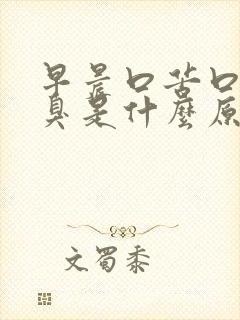 早晨口苦口
臭是什麼原
文蜀黍